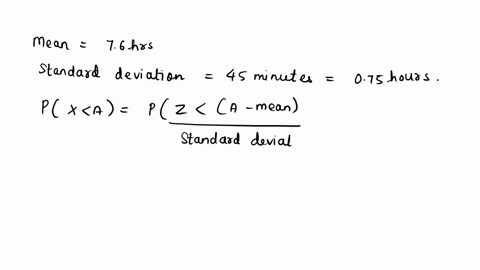 Mean = 7.6 hrs
Standard deviation = 45 minutes = 0.75 hours.
P( X < A) = P( Z < (A - mean)
Standard devial